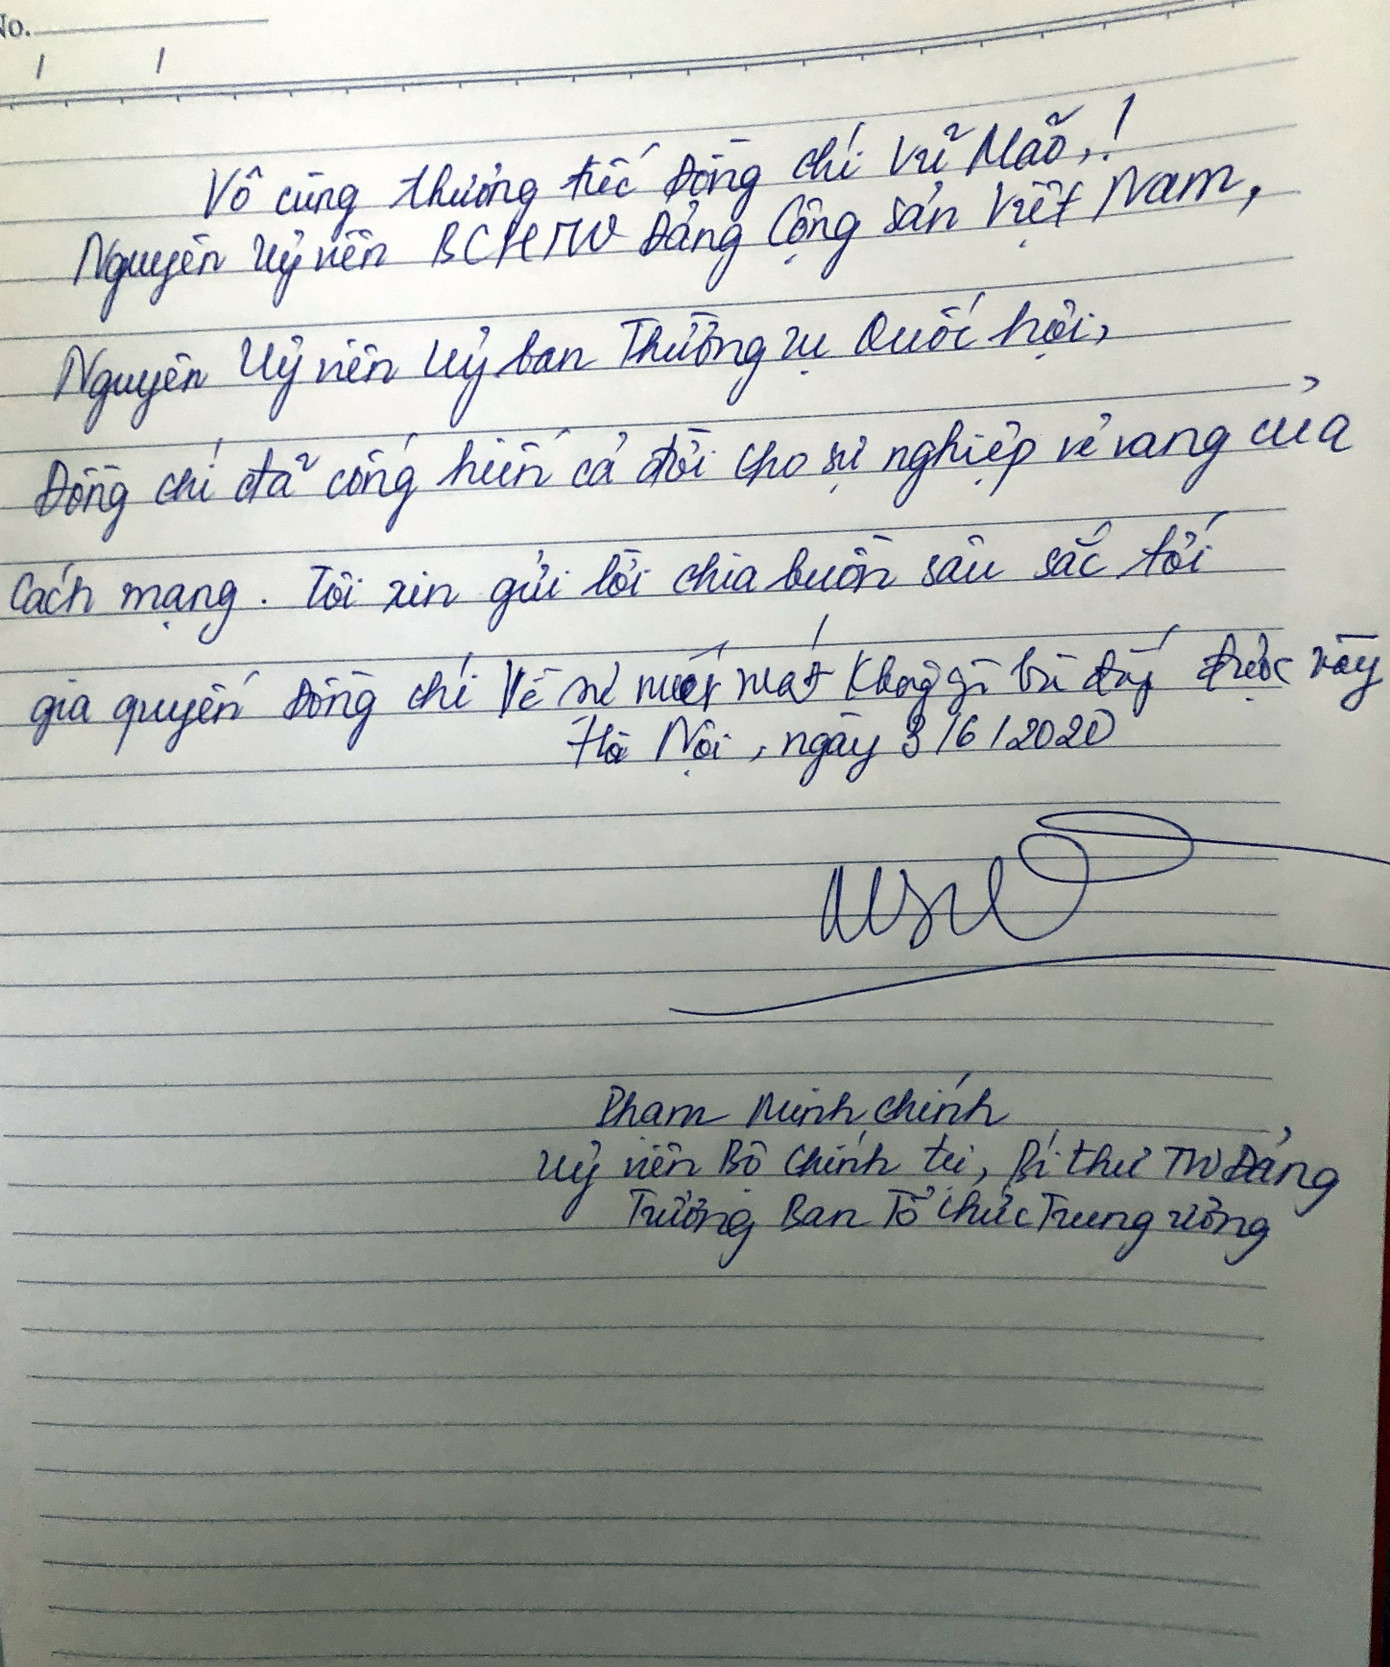 No.
/ /
Vô cùng thương tiếc Đồng chí Vũ Mão,!
Nguyên Uỷ viên BCHTW Đảng Cộng sản Việt Nam,
Nguyên Uỷ viên Uỷ ban Thường vụ Quốc hội,
Đồng chí đã cống hiến cả đời cho sự nghiệp vẻ vang của
Cách mạng. Tôi xin gửi lời chia buồn sâu sắc tới
gia quyến đồng chí về sự mất mát không gì bù đắp được này
Hà Nội, ngày 3/6/2020
Phạm Minh Chính
Uỷ viên Bộ Chính trị, Bí thư TW Đảng
Trưởng Ban Tổ chức Trung ương